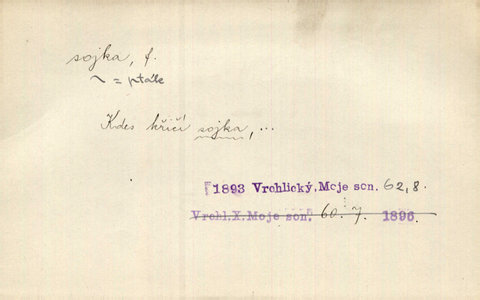 sojka, f.
~ = pták
Kdes křičí sojka, ...
1893 Vrchlický. Moje son. 62, 8.
Vrchl. X. Moje son. 60. 7. 1896.